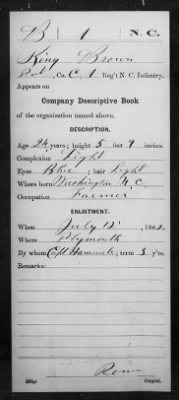 B 1 N.C.
King Brown
Pvt., Co. C, 1 Reg't N. C. Infantry.
Appears on
Company Descriptive Book
of the organization named above.
DESCRIPTION.
Age 24 years; height 5 feet 9 inches.
Complexion Light
Eyes Blue; hair Light
Where born Washington N.C.
Occupation Farmer
ENLISTMENT.
When July 12, 1862.
Where Plymouth
By whom Capt Hammell; term 3 y'rs.
Remarks:
Copyist.